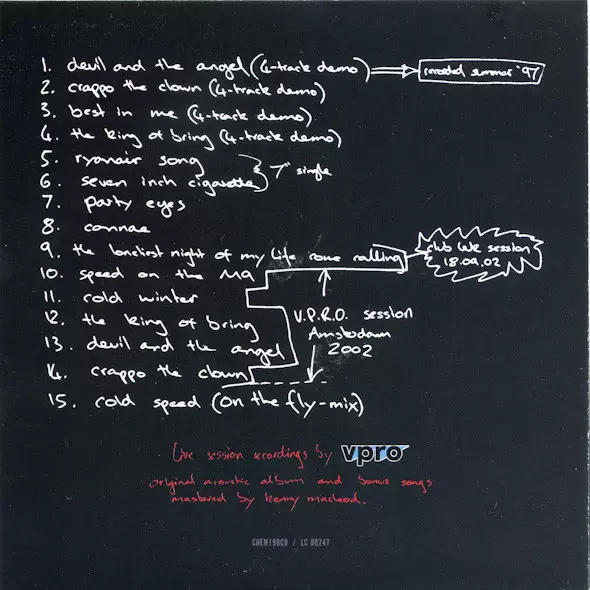 1. devil and the angel (4-track demo) recorded summer '97
2. crappo the clown (4-track demo)
3. best in me (4-track demo)
4. the king of bring (4-track demo)
5. ryanair song
6. seven inch cigarette
7" single
7. party eyes
8. connae
9. the loneliest night of my life come calling
club lek session
18.09.02
10. speed on the M9
11. cold winter
12. the king of bring
13. devil and the angel
14. crappo the clown
V.P.R.O. session
Amsterdam
2002
15. cold speed (on the fly-mix)
live session recordings by vpro
original acoustic album and bonus songs
mastered by kenny macleod.
CHEM198CD / LC 00247